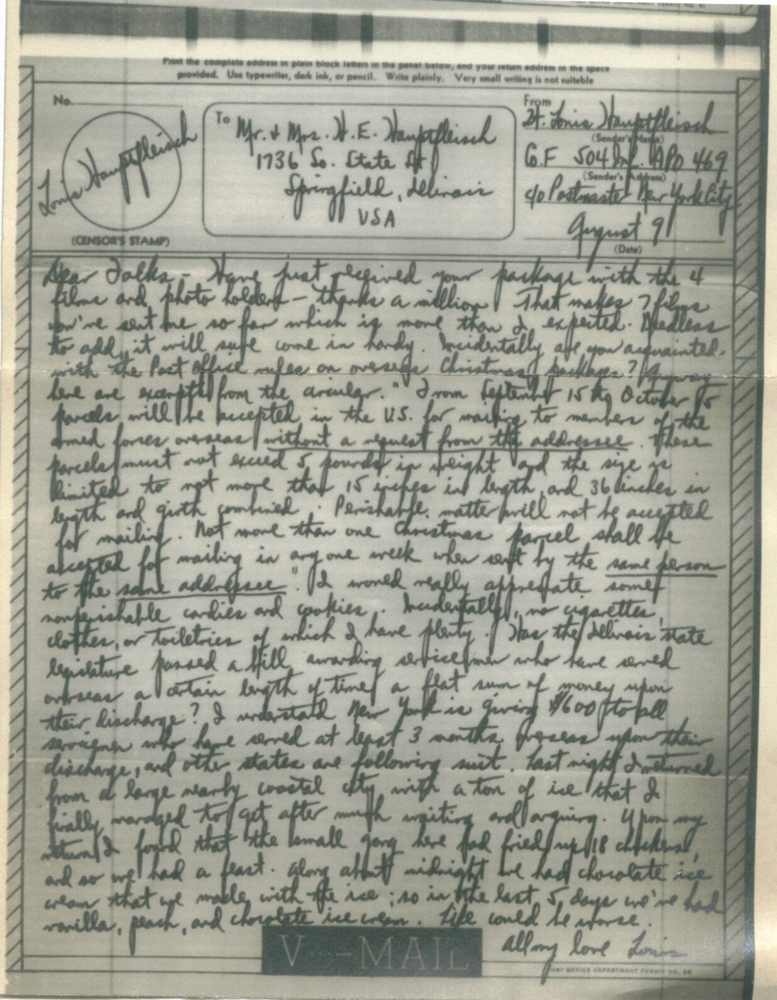 Print the complete address in plain block letters in the panel below, and your return address in the space
provided. Use typewriter, dark ink, or pencil. Write plainly. Very small writing is not suitable
No.
Louis Hauptfleisch
(CENSOR'S STAMP)
To
Mr. & Mrs. H. E. Hauptfleisch
1736 So. State St
Springfield, Illinois
USA
From
Lt. Louis Hauptfleisch
(Sender's Name)
Co.F 504 Inf. APO 469
(Sender's Address)
c/o Postmaster New York City
August 9
(Date)
Dear Folks, - Have just received your package with the 4
films and photo holders - thanks a million. That makes 7 films
you've sent me so far which is more than I expected. Needless
to add, it will sure come in handy. Incidentally are you acquainted
with the Post Office rules on overseas Christmas packages? Anyway
here are excerpts from the circular. "From September 15 to October 15
parcels will be accepted in the U.S. for mailing to members of the
armed forces overseas without a request from the addressee. These
parcels must not exceed 5 pounds in weight and the size is
limited to not more than 15 inches in length, and 36 inches in
length and girth combined. Perishable matter will not be accepted
for mailing. Not more than one Christmas parcel shall be
accepted for mailing in any one week when sent by the same person
to the same addressee." I would really appreciate some
nonperishable candies and cookies. Incidentally, no cigarettes,
clothes, or toiletries of which I have plenty. Has the Illinois state
legislature passed a bill awarding servicemen who have served
overseas a certain length of time a flat sum of money upon
their discharge? I understand New York is giving $600 to all
servicemen who have served at least 3 months overseas upon their
discharge, and other states are following suit. Last night I returned
from a large nearby coastal city with a ton of ice that I
finally managed to get after much waiting and arguing. Upon my
return I found that the small gang here had fried up 18 chickens,
and so we had a feast. Along about midnight we had chocolate ice
cream that we made with the ice; so in the last 5 days we've had
vanilla, peach, and chocolate ice cream. Life could be worse.
All my love Louis
V--MAIL
POST OFFICE DEPARTMENT PERMIT NO.